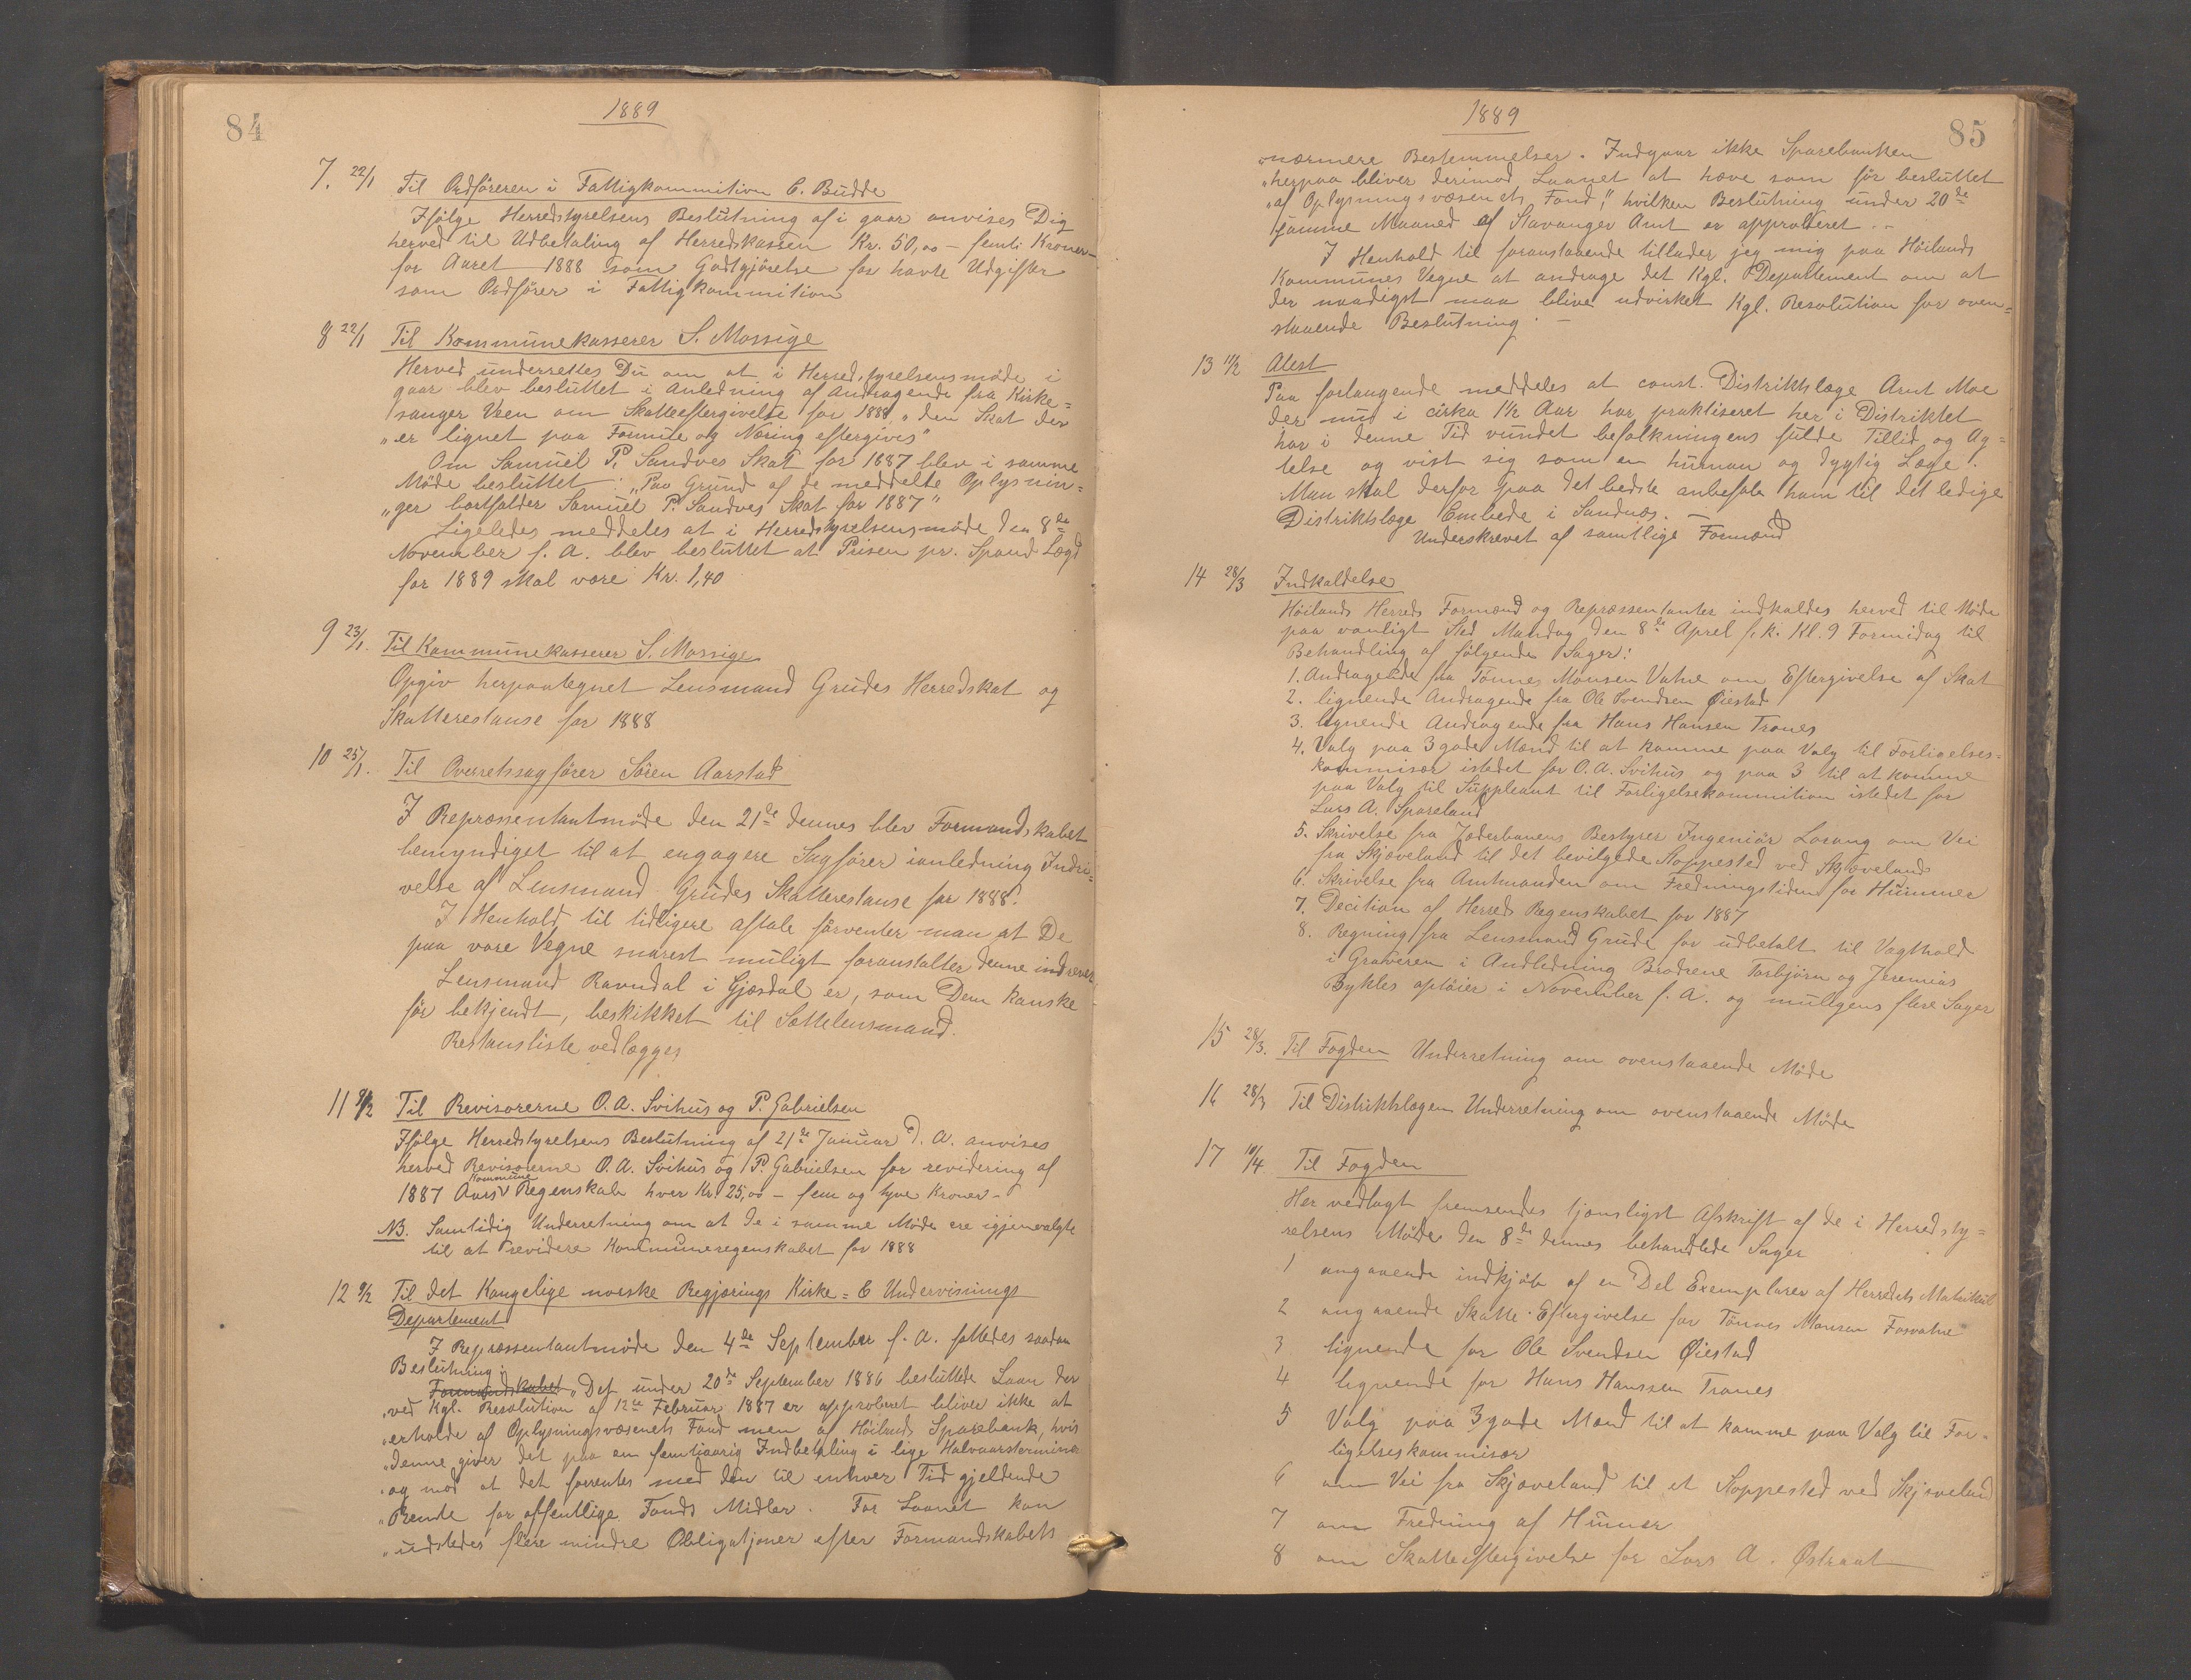 84
1889
7. 22/1 Til Ordføreren i Fattigkommition C. Budde
Ifølge Herredstyrelsens Beslutning af i gaar anvises Dig
herved til Udbetaling af Herredskassen Kr. 50,00 – femti Kroner –
for Aaret 1888 som Godtgjørelse for havte Udgifter
som Ordfører i Fattigkommition
8 22/1 Til Kommunekasserer S. Mossige
Herved underrettes Du om at i Herredstyrelsensmøde i
gaar blev besluttet i Anledning af Andragende fra Kirke=
sanger Vren om Skatteeftergivelse for 1888 „den Skat der
„er lignet paa Formue og Næring eftergives"
Om Samuel P. Sandves Skat for 1887 blev i samme
Møde besluttet: „Paa Grund af de meddelte Oplysnin=
„ger bortfalder Samuel P. Sandves Skat for 1887"
Ligeledes meddeles at i Herredstyrelsensmøde den 8de
November f. A. blev besluttet at Prisen pr. Spand Lægd
for 1889 skal være Kr. 1,40
9 23/1. Til Kommunekasserer S. Mossige
Opgiv herpaategnet Lensmand Grudes Herredskat og
Skatterestanse for 1888
10 25/1. Til Overretssagfører Søren Aarstad
I Repræsentantmøde den 21de dennes blev Formandskabet
bemyndiget til at engagere Sagfører ianledning Indri=
velse af Lensmand Grudes Skatterestanse for 1888.
I Henhold til tidligere aftale forventer man at De
paa vore Vegne snarest muligt foranstalter denne indrevet
Lensmand Ravndal i Gjæsdal er, som Dem kanske
før bekjendt, beskikket til Sættelensmand.
Restansliste vedlægges
11 9/2 Til Revisorerne O. A. Svihus og P. Gabrielsen
Ifølge Herredstyrelsens Beslutning af 21de Januar d. A. anvises
herved Revisorerne O. A. Svihus og P. Gabrielsen for revidering af
1887 Aars Kommune Regenskab hver Kr. 25,00 – fem og tyve Kroner –
NB. Samtidig Underretning om at de i samme Møde ere igjenvalgte
til at revidere Kommuneregenskabet for 1888
12 9/2 Til det Kongelige norske Regjerings Kirke= & Undervisnings
Departement
I Repræssentantmøde den 4de September f. A. fattedes saadan
Beslutning:
Formandskabet „Det under 20de September 1886 besluttede Laan der
„ved Kgl. Resolution af 12te Februar 1887 er approberet bliver ikke at
„erholde af Oplysningsvæsenets Fond men af Høilands Sparebank, hvis
„denne giver det paa en femtiaarig Indbetaling i lige Halvaarsterminer
„og mod at det forrentes med den til enhver Tid gjeldende
„Rente for offentlige Fonds Midler. For Laanet kan
„udstedes flere mindre Obligatjoner efter Formandskabets
85
1889
„nærmere Bestemmelser. Indgaar ikke Sparebanken
„herpaa bliver derimod Laanet at hæve som før besluttet
„af Oplysningsvæsenets Fond", hvilken Beslutning under 20de
samme Maaned af Stavanger Amt er approberet. –
I Henhold til foranstaaende tillader jeg mig paa Høilands
Kommunes Vegne at andrage det Kgl. Departement om at
der naadigst maa blive udvirket Kgl. Resolution for oven=
staaende Beslutning. –
13 11/2 Atest
Paa forlangende meddeles at const. Distriktslæge Arnt Moe
der nu i cirka 1½ Aar har praktiseret her i Distriktet
har i denne Tid vundet befolkningens fulde Tillid og Ag=
telse og vist sig som en human og dygtig Læge.
Man skal derfor paa det bedste anbefale ham til det ledige
Distriktslæge Embede i Sandnæs. –
Underskrevet af samtlige Formænd
14 28/3 Indkaldelse
Høilands Herreds Formænd og Repræssentanter indkaldes herved til Møde
paa vanligt Sted Mandag den 8de Aprel f. k. Kl. 9 Formidag til
Behandling af følgende Sager:
1. Andragende fra Tønnes Monsen Vatne om Eftergivelse af Skat
2. lignende Andragende fra Ole Svendsen Øiestad
3. lignende Andragende fra Hans Hansen Trones
4. Valg paa 3 gode Mænd til at komme paa Valg til Forligelses=
kommisær istedet for O. A. Svihus og paa 3 til at komme
paa Valg til Suppleant til Forligelsekommition istedet for
Lars A. Sporeland
5. Skrivelse fra Jæderbanens Bestyrer Ingeniør Losang om Vei
fra Skjæveland til det bevilgede Stoppested ved Skjæveland
6. Skrivelse fra Amtmanden om Fredningstiden for Hummer
7. Decition af Herreds Regenskabet for 1887
8. Regning fra Lensmand Grude for udbetalt til Vagthold
i Graveren i Andledning Brødrene Torbjørn og Jeremias
Bykles optøier i November f. A. og muligens flere Sager
15 28/3. Til Fogden Underretning om ovenstaaende Møde
16 28/3 Til Distriktslægen Underretning om ovenstaaende Møde
17 10/4 Til Fogden
Her vedlagt fremsendes tjenstligst Afskrift af de i Herredsty=
relsens Møde den 8de dennes behandlede Sager
1 angaaende indkjøb af en Del Exemplarer af Herredets Matrikul
2 angaaende Skatte-Eftergivelse for Tønnes Monsen Fosvatne
3 lignende for Ole Svendsen Øiestad
4 lignende for Hans Hanssen Trones
5 Valg paa 3 gode Mænd til at komme paa Valg til For=
ligelseskommisær
6 om Vei fra Skjæveland til et Stoppested ved Skjæveland
7 om Fredning af Humer
8 om Skatteeftergivelse for Lars A. Østraat